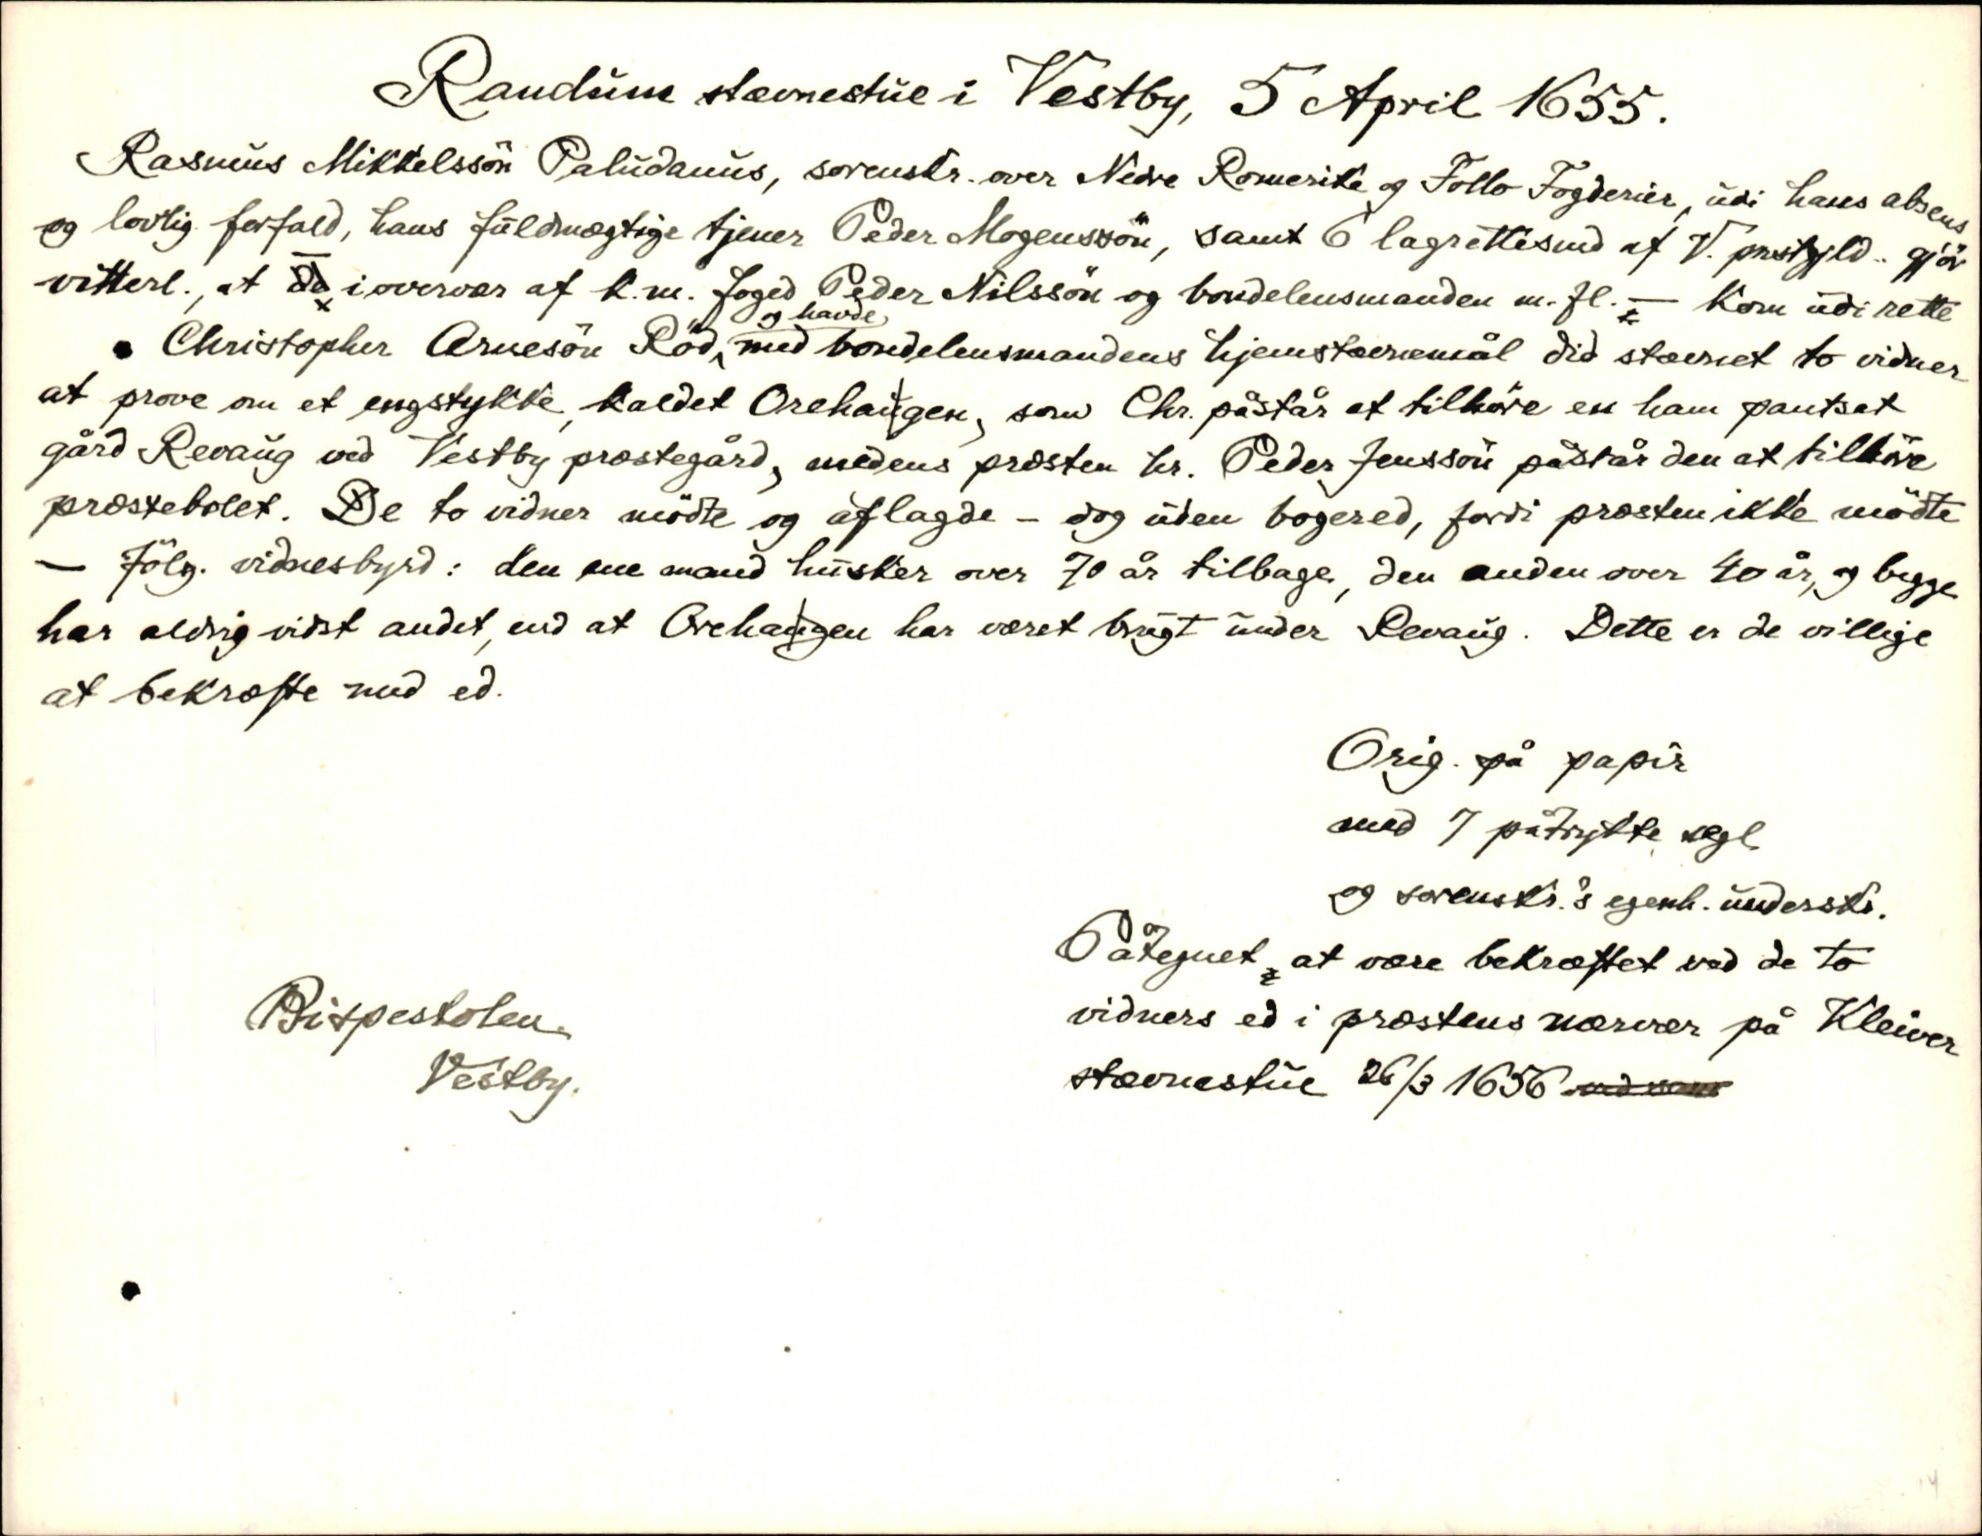 Randum stævnestue i Vestby, 5 April 1655.
Rasmus Mikkelssön Paludanus, sorenskr. over Nedre Romerike og Follo Fogderier, udi hans absens
og lovlig forfald, hans fuldmægtige tjener Peder Mogenssön, samt 6 lagrettesmd af V. prestgjld. gjör
vitterl., at da i overvær af k. m. foged Peder Nilssön og bondelensmanden m. fl. — kom udi rette
Christopher Arnesön Röd, og havde med bondelensmandens hjemstævnemål did stævnet to vidner
at prove om et engstykke, kaldet Orehaugen, som Chr. påstår at tilhöre en ham pantsat
gård Revaug ved Vestby præstegård, medens præsten hr. Peder Jenssön påstår den at tilhöre
præstebolet. De to vidner mödte og aflagde – dog uden bogered, fordi præsten ikke mödte
– fölg. vidnesbyrd: den ene mand husker over 70 år tilbage, den anden over 40 år, og begge
har aldrig vidst andet, end at Orehaugen har været brugt under Revaug. Dette er de villige
at bekræfte med ed.
Orig. på papir
med 7 påtrykte segl
og sorenskr.'s egenh. underskr.
Påtegnet at være bekræftet ved de to
vidners ed i præstens nærvær på Kleiver
stævnestue 26/3 1656
Bispestolen.
Vestby.
14